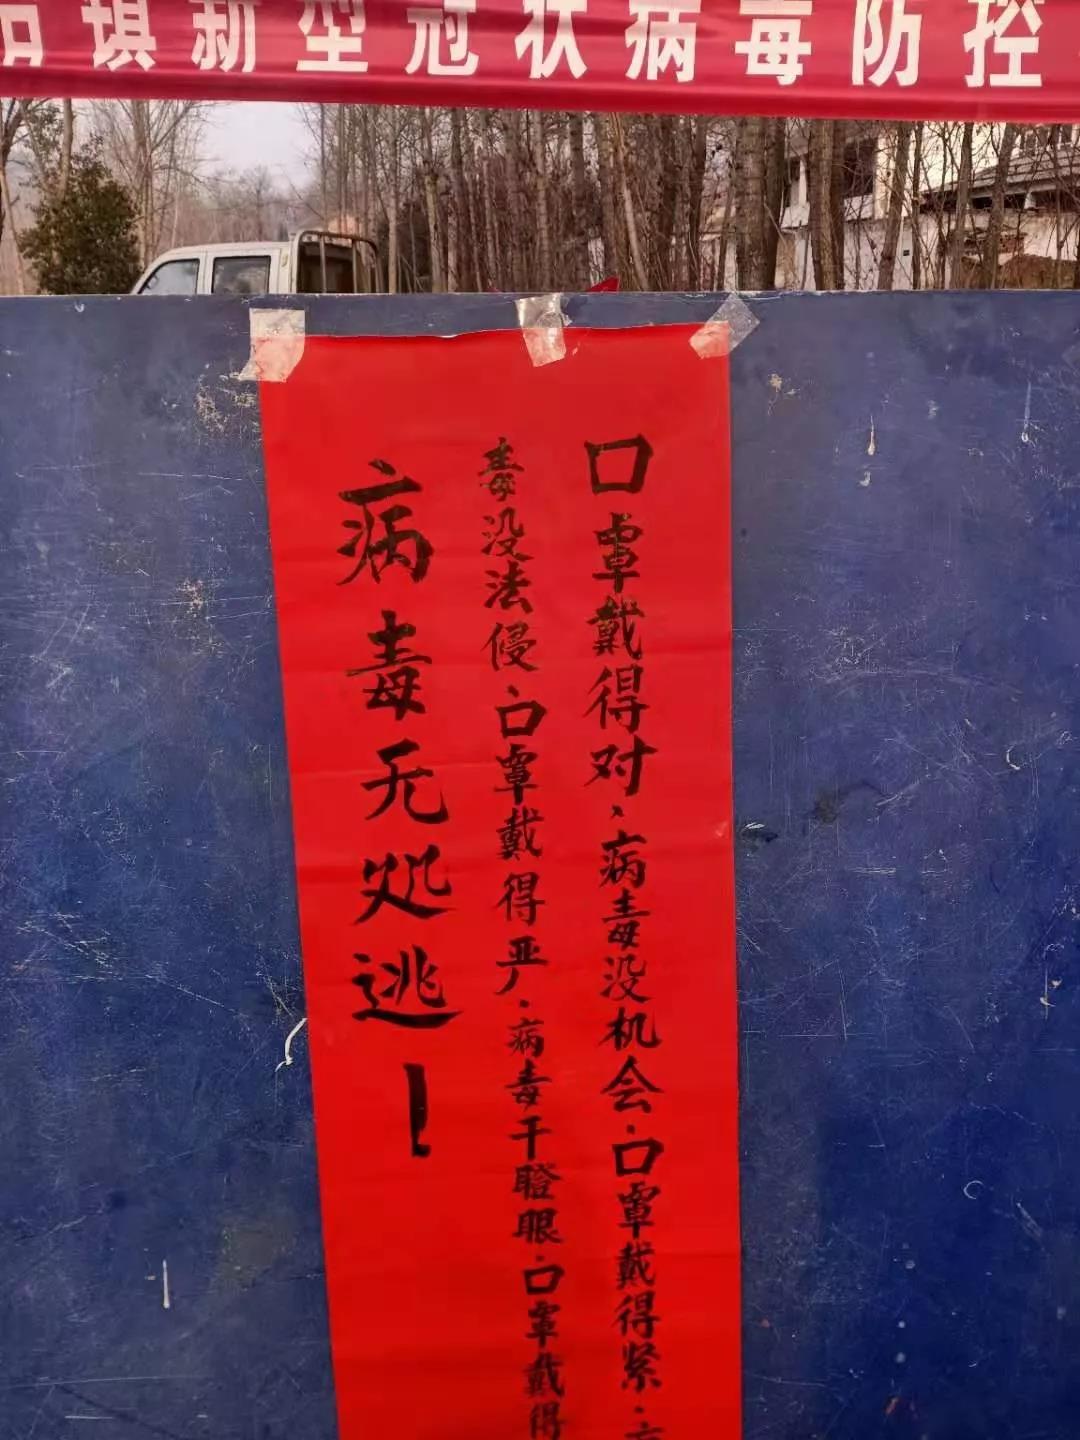 镇新型冠状病毒防控
口罩戴得对、病毒没机会.口罩戴得紧.
毒没法侵、口罩戴得严.病毒干瞪眼.口罩戴得
病毒无处逃!